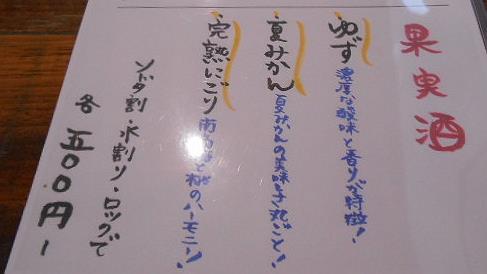 果実酒
ゆず 濃厚な酸味と香りが特徴!
夏みかん 夏みかんの美味しさ丸ごと!
完熟にごり 南高梅と桃のハーモニー!
ソーダ割・水割り・ロックで
各 五〇〇円ー